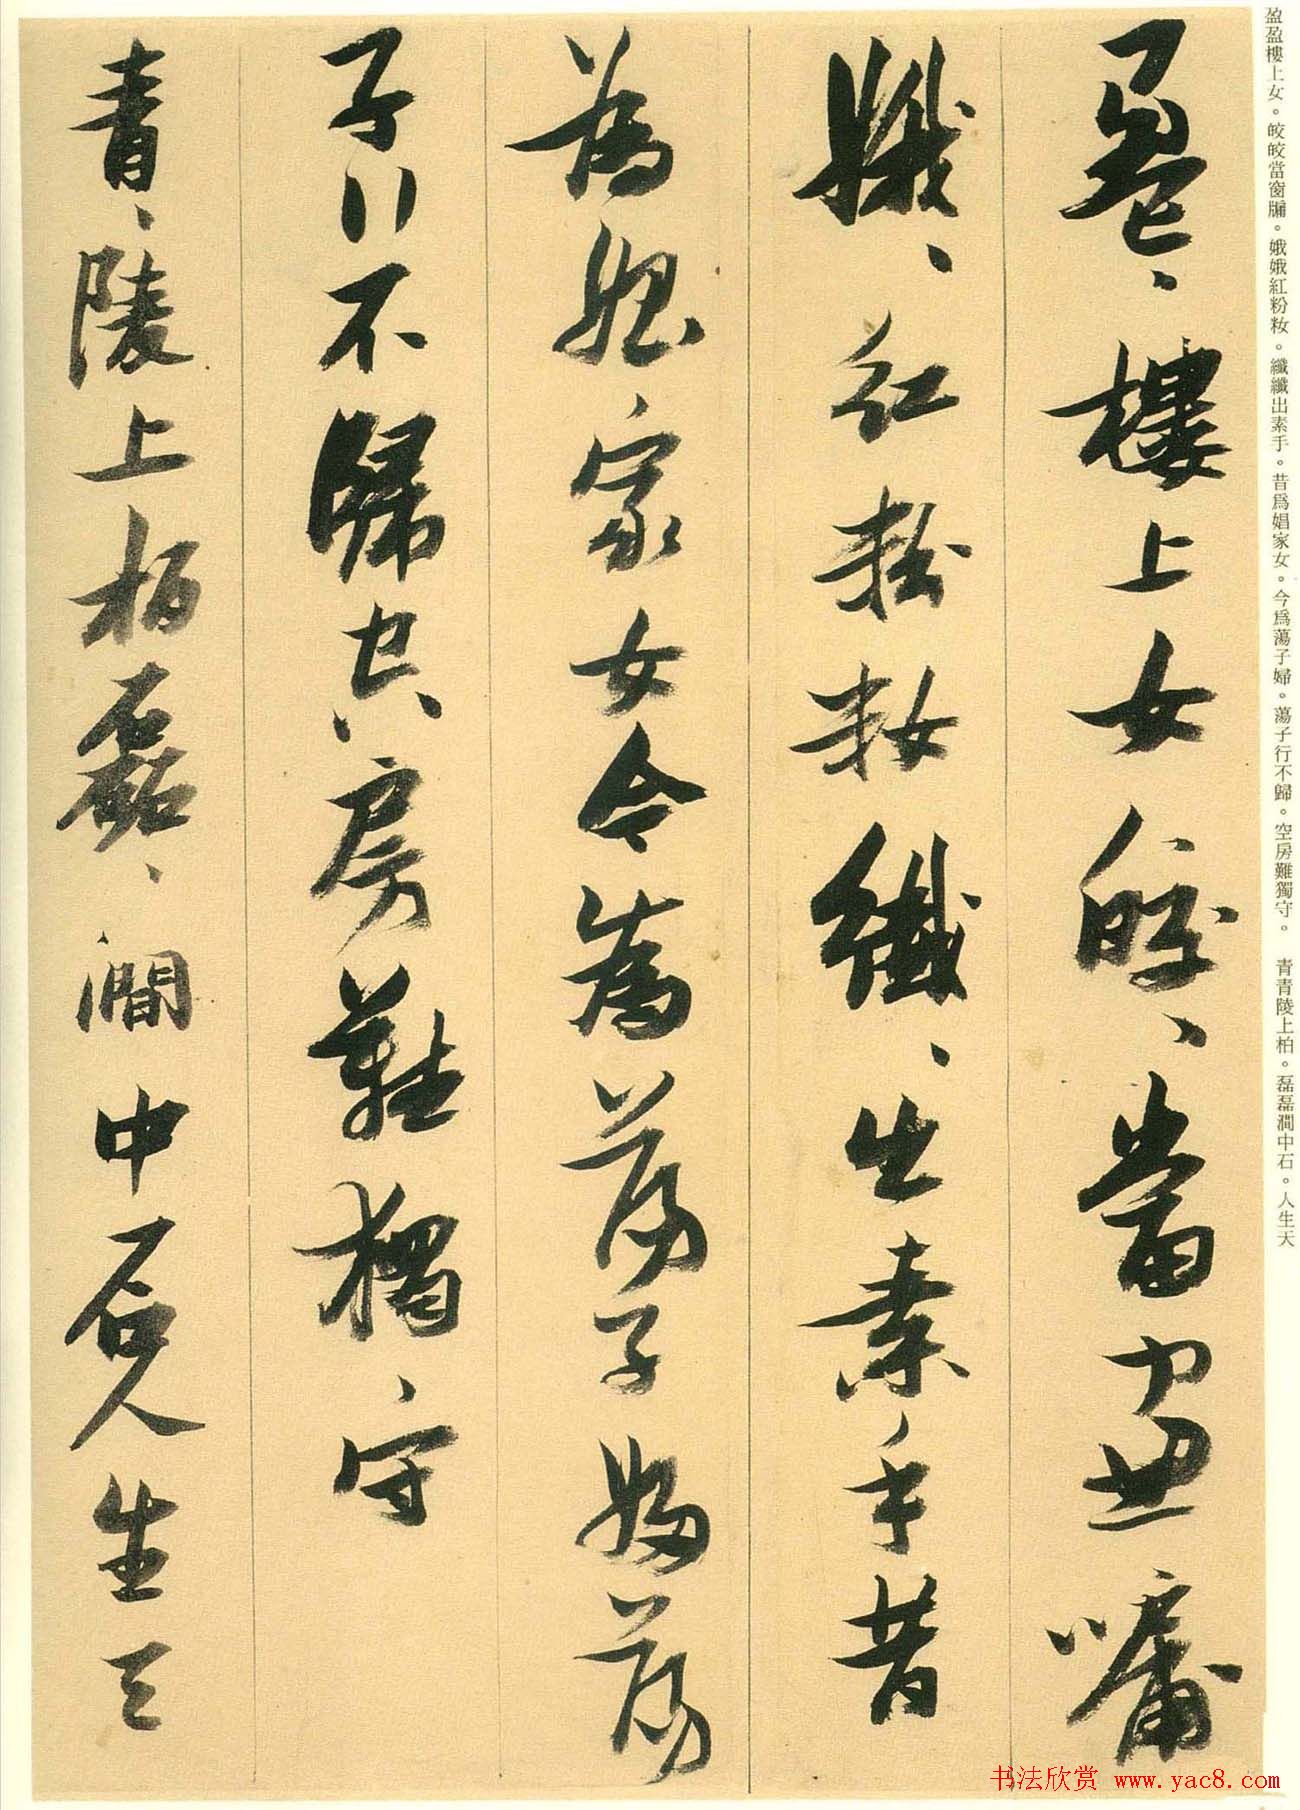 盈盈樓上女。皎皎當窗牖。娥娥紅粉籹。纖纖出素手。昔爲娼家女。今爲蕩子婦。蕩子行不歸。空房難獨守。　青青陵上柏。磊磊澗中石。人生天
盈、樓上女皎、當窗牖
娥、紅粉籹纖、出素手昔
為娼家女今為蕩子婦蕩
子行不歸空房難獨守
青、陵上柏磊、澗中石人生天
书法欣赏 www.yac8.com